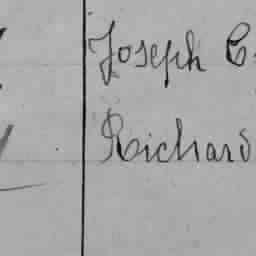 Joseph C.
Richard